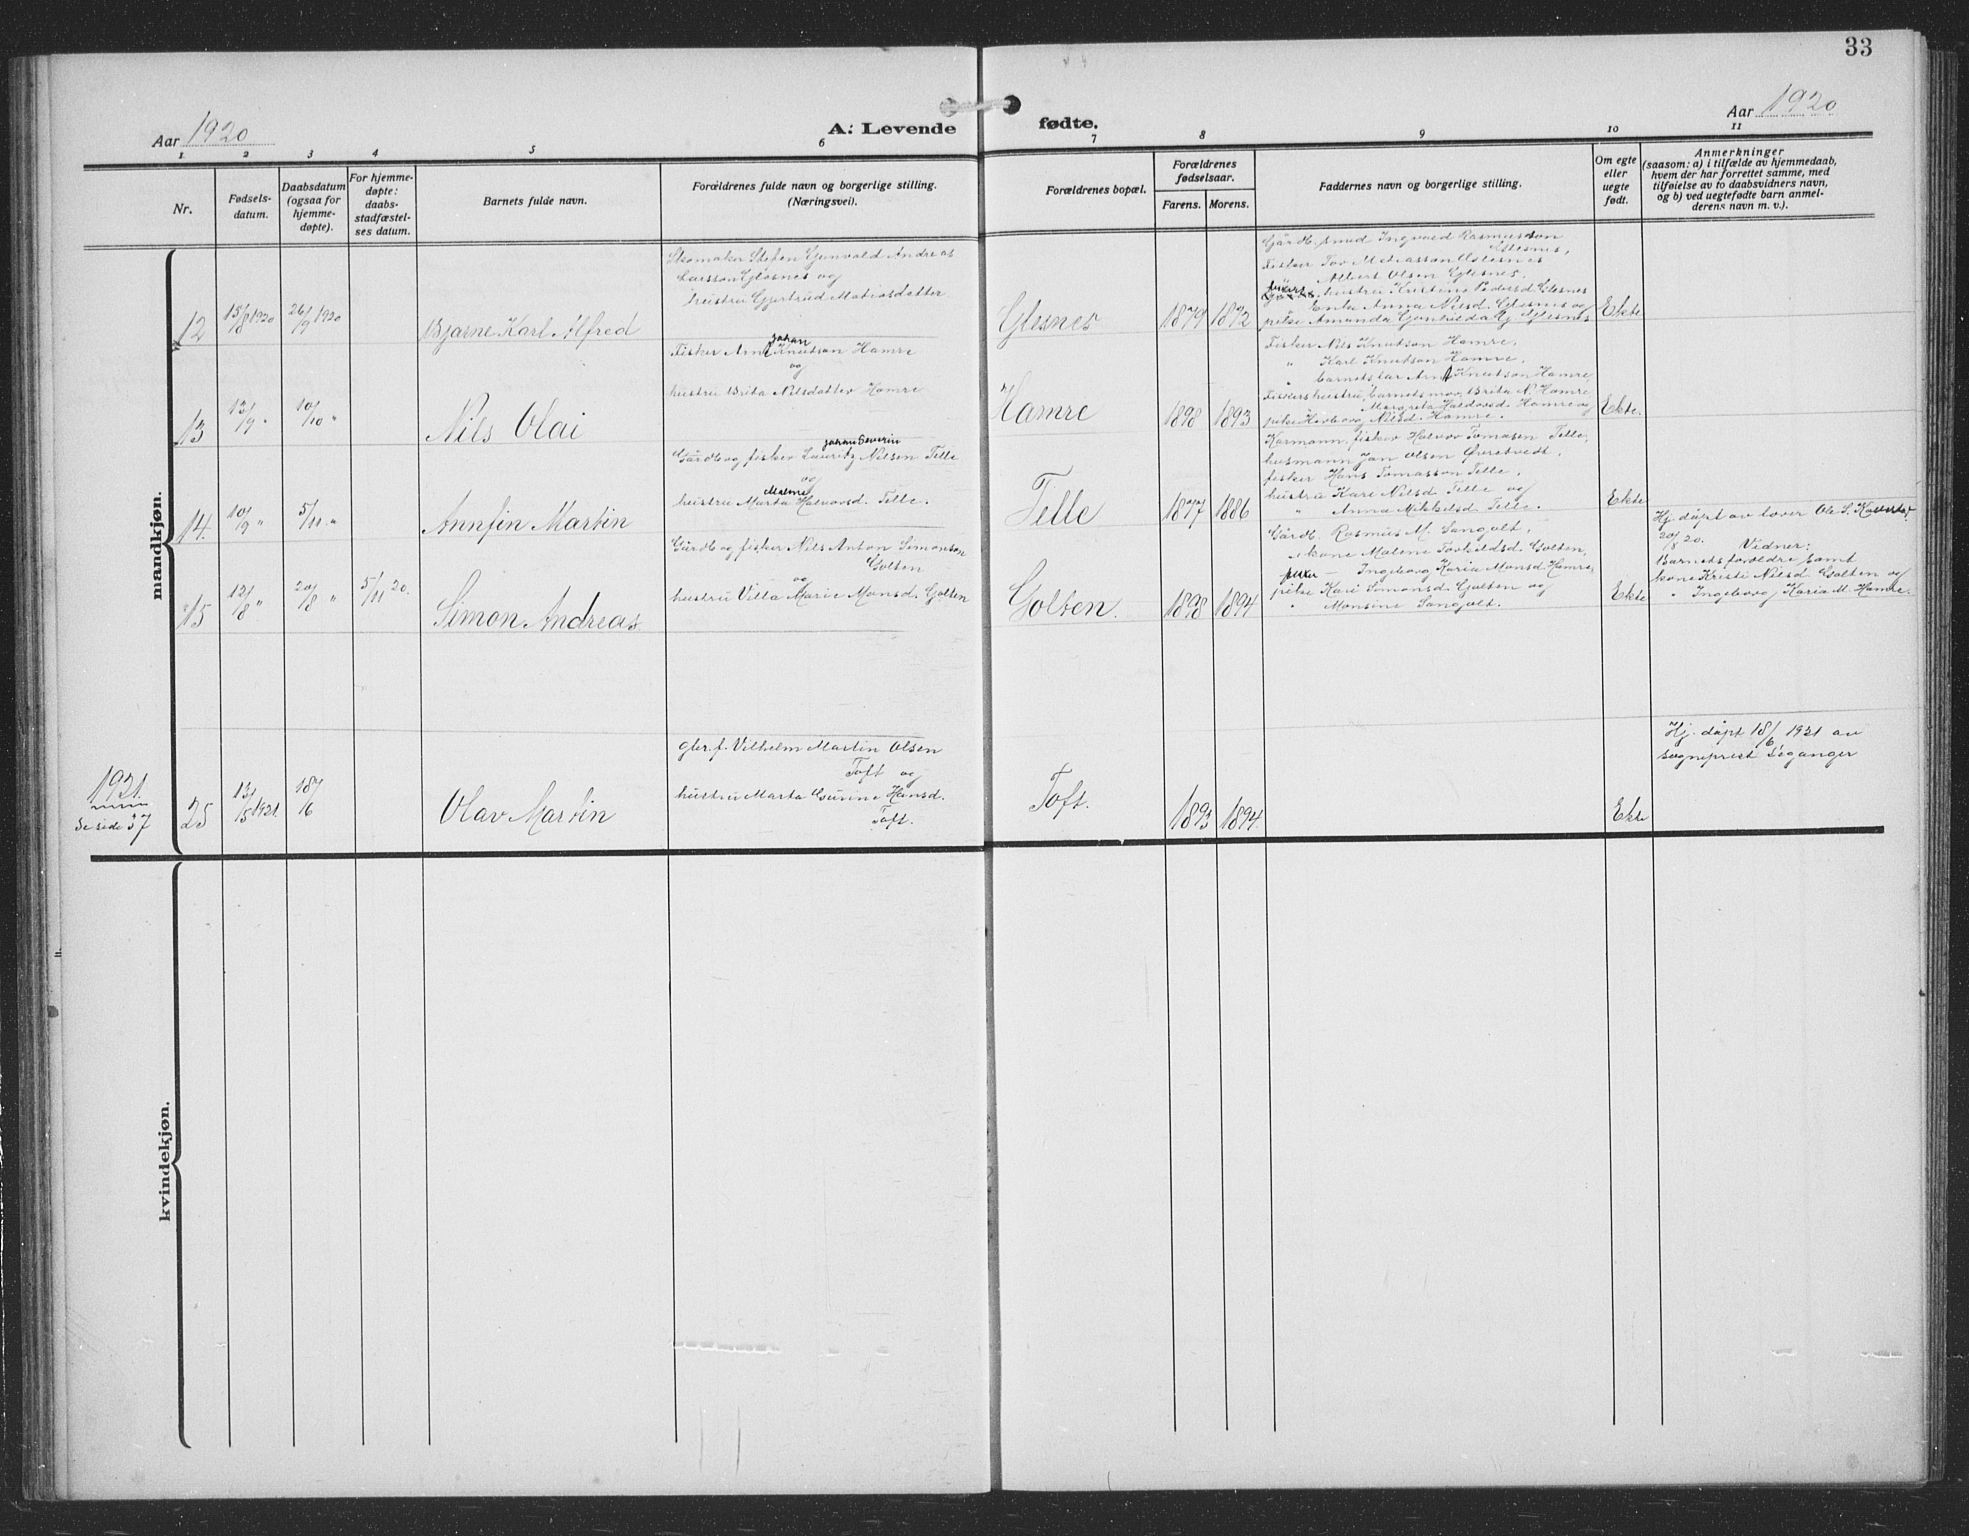 33
Aar 1920
A: Levende fødte.
Aar 1920
1 2 3 4 5 6 7 8 9 10 11
Nr.
Fødsels-
datum.
Daabsdatum
(ogsaa for
hjemme-
døpte).
For hjemme-
døpte:
daabs-
stadfæstel-
ses datum.
Barnets fulde navn.
Forældrenes fulde navn og borgerlige stilling.
(Næringsvei).
Forældrenes bopæl.
Forældrenes
fødselsaar.
Farens. Morens.
Faddernes navn og borgerlige stilling.
Om egte
eller
uegte
født.
Anmerkninger
(saasom: a) i tilfælde av hjemmedaab,
hvem der har forrettet samme, med
tilføielse av to daabsvidners navn,
og b) ved uegtefødte barn anmel-
derens navn m. v.).
mandkjøn.
12
15/8 1920
26/9 1920
Bjarne Karl Alfred
Skomaker Steffen Gunvald Andreas
Larsson Glesnes og
hustru Gjertrud Matiasdatter
Glesnes
1879 1872
Gårdb. smed Ingvald Rasmusson
Glesnes,
Fisker Tor Matiasson Glesnes
Albert Olsen Glesnes,
hustru Kristine Pedersd. Glesnes
Enke Anna Nilsd. Glesnes og
pike Amanda Glesnes
Ekte
13
12/9 "
10/10 "
Nils Olai
Johan
Fisker Arne Knutson Hamre
og
hustru Brita Nilsdatter Hamre
Hamre
1898 1893
Fisker Nils Knutson Hamre,
" Karl Knutson Hamre,
" barnets far Arne Knutson Hamre,
Fiskers hustru, barnets mor, Brita N. Hamre
Margreta Haldorsd. Hamre og
pike Herborg Nilsd. Hamre.
Ekte.
14.
10/9 "
5/11 "
Annfin Martin
Johan Severin
Gårdb og fisker Lauritz Nilsen Telle
og
Malene
hustru Marta Halvorsd. Telle.
Telle
1877 1886
Kårmann, fisker Halvor Tomasen Telle,
husmann Jan Olsen Øvretvedt,
fisker Hans Tomasson Telle,
hustru Kari Nilsd. Telle og
" Anna Mikkelsd. Telle.
Ekte
15
12/8 "
20/8 "
5/11 20.
Simon Andreas
Gårdb og fisker Nils Anton Simonson
Golten
og
hustru Villa Marie Monsd. Golten
Golten.
1898 1894
Gårdb. Rasmus M. Sangolt,
kone Malene Torkildsd. Golten,
pike — Ingeborg Karia Monsd. Hamre,
pike Kari Simonsd. Golten og
" Monsine Sangolt.
Ekte
Hj. døpt av lærer Ole S.
20/8 20. Vidner:
Barnets foreldre samt
kone Kristi Nilsd. Golten og
" Ingeborg Karia M. Hamre.
1921.
Se side 37
25
13/5 1921.
18/6
Olav Martin
gbr. f. Vilhelm Martin Olsen
Toft og
hustru Marta Gurine Hansd.
Toft.
Toft.
1893 1894.
Ekte
Hj. døpt 18/6 1921 av
sogneprest Seganger
kvindekjøn.